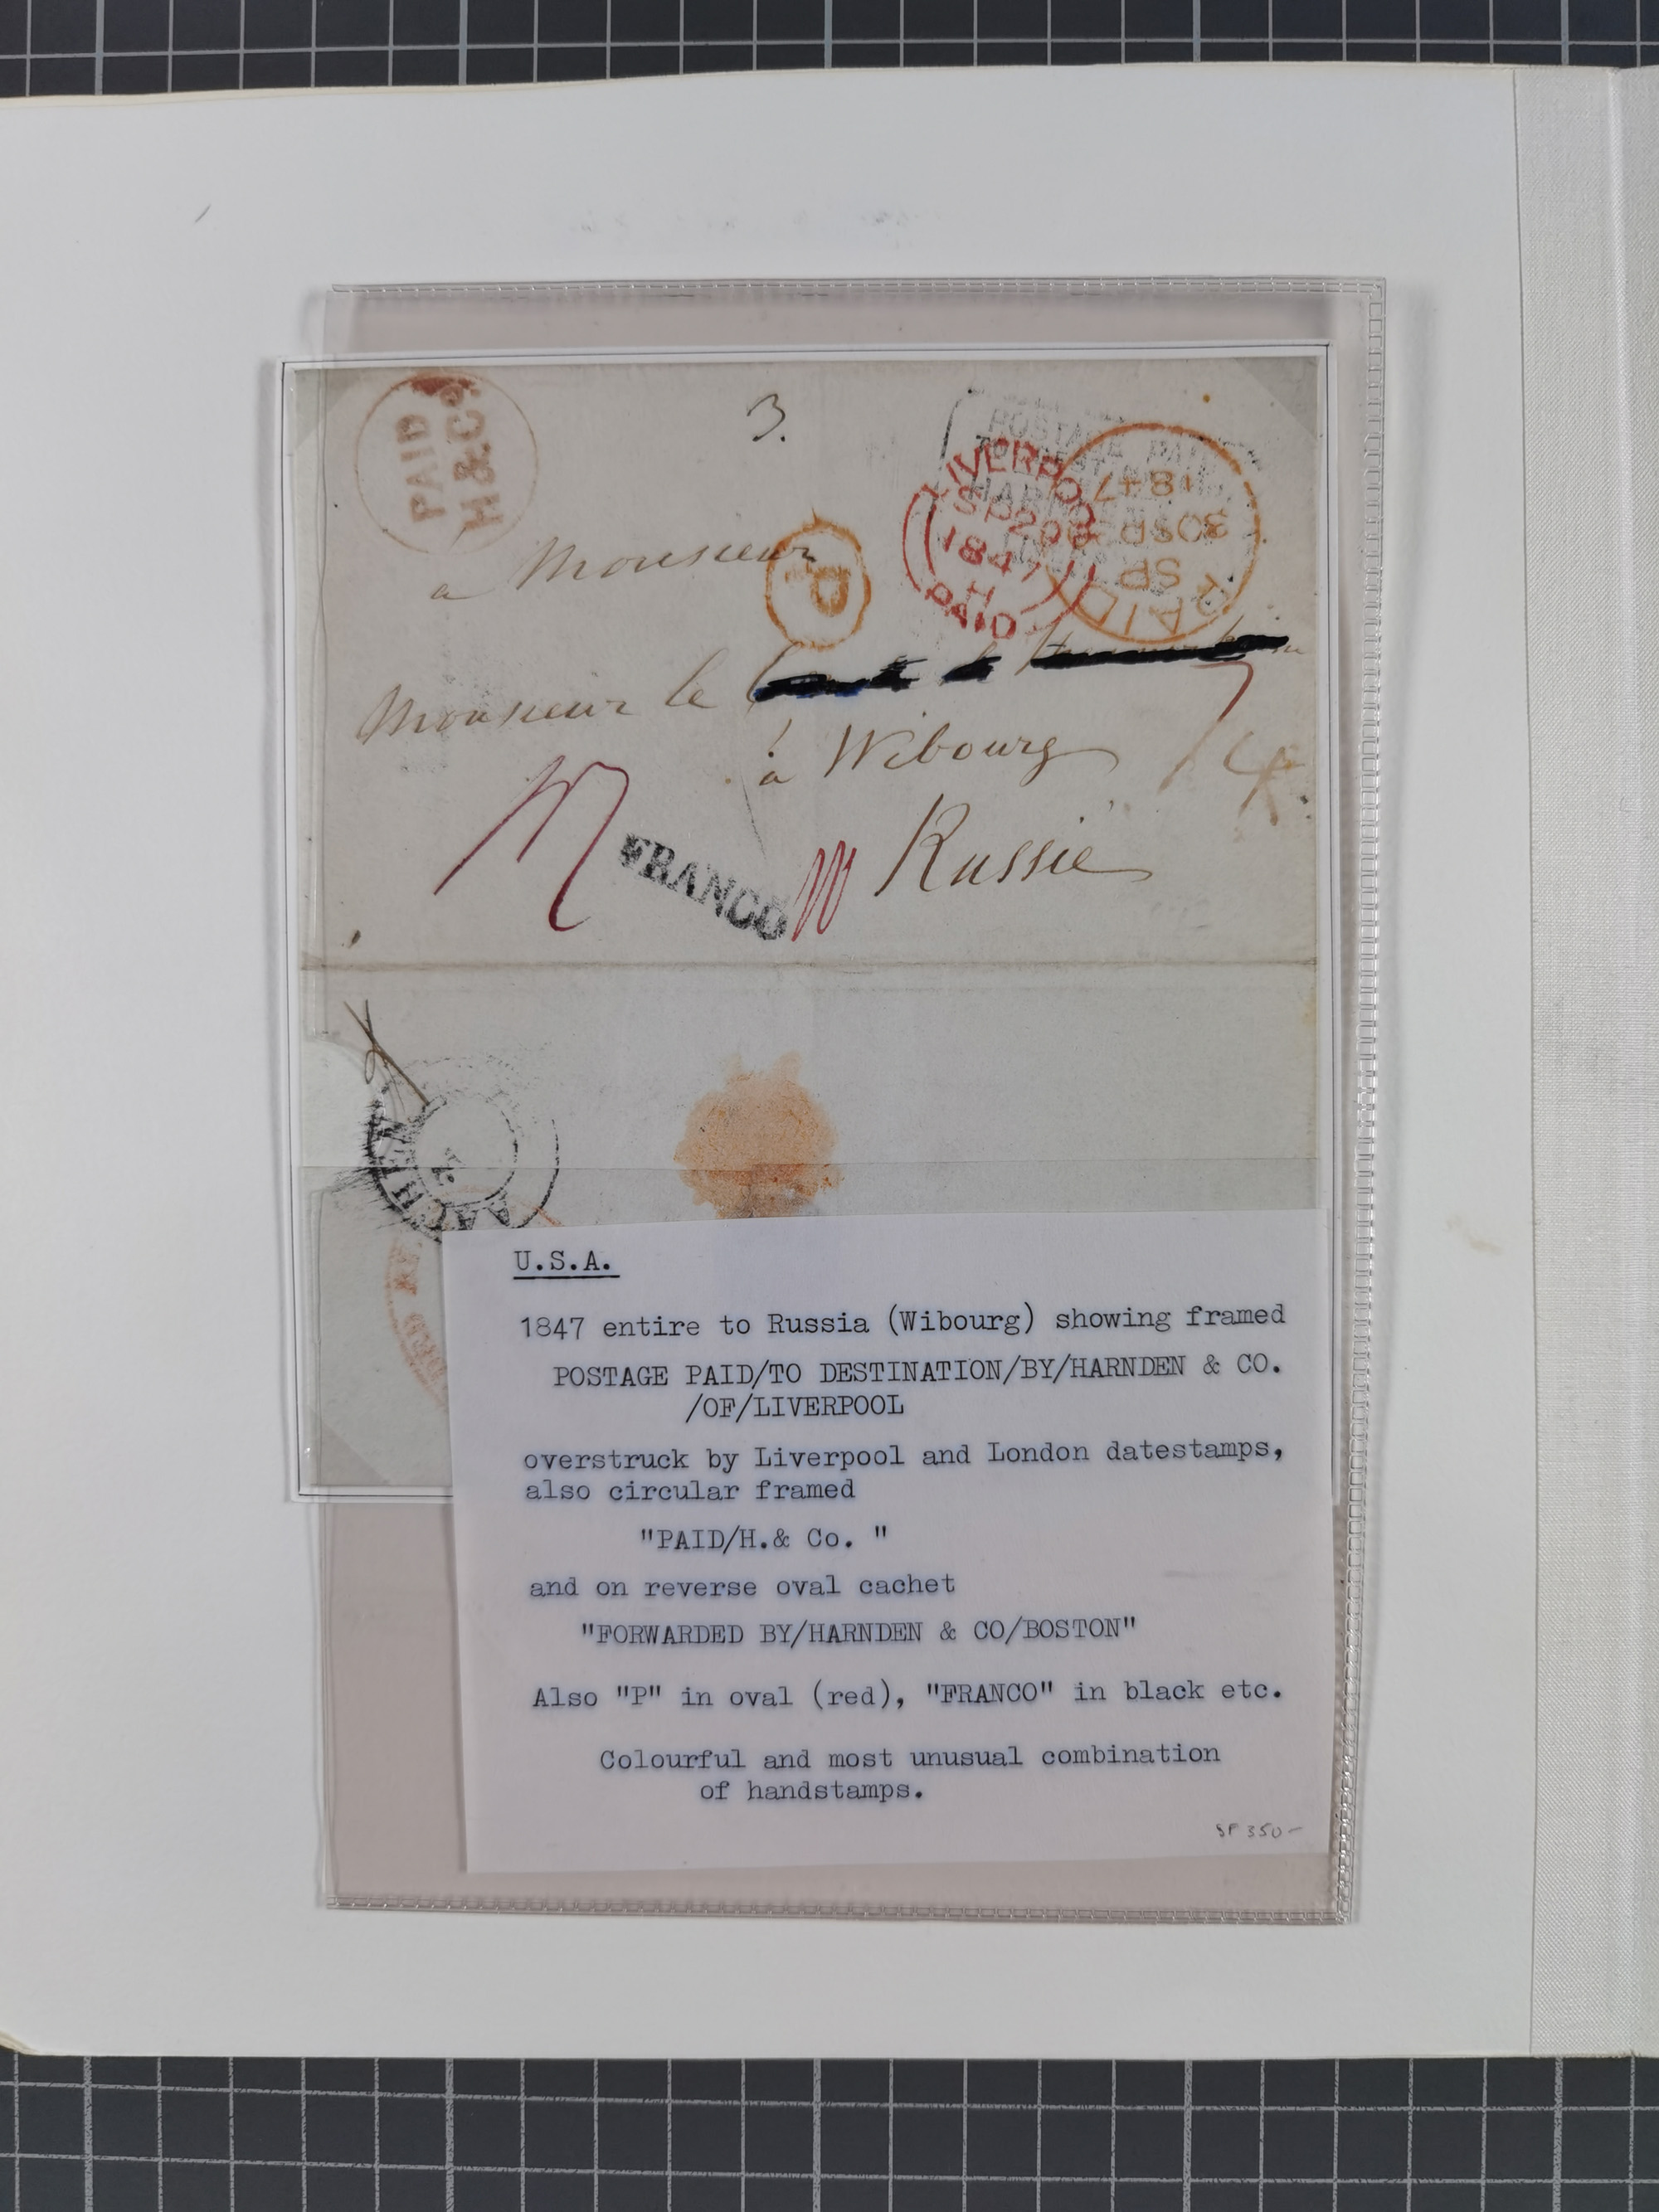 PAID
H & Co.
3.
POSTAGE PAID
LIVERPOOL
SP 29
1847
H
PAID
PAID
SP
30 SP 30
1847
a Monsieur
P
Monsieur le
à Wibourg
Russie
FRANCO
AACHEN
U.S.A.
1847 entire to Russia (Wibourg) showing framed
POSTAGE PAID/TO DESTINATION/BY/HARNDEN & CO.
/OF/LIVERPOOL
overstruck by Liverpool and London datestamps,
also circular framed
"PAID/H.& Co. "
and on reverse oval cachet
"FORWARDED BY/HARNDEN & CO/BOSTON"
Also "P" in oval (red), "FRANCO" in black etc.
Colourful and most unusual combination
of handstamps.
SF 350-